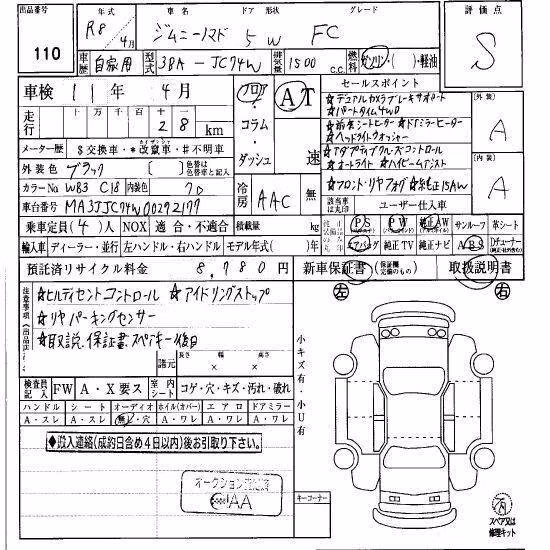 出品番号 年式 車名 ドア 形状 グレード 評価点
110 R8/4月 ジムニーノマド 5W FC S
車歴 自家用 型式 3BA-JC74W 排気量 1500 c.c. 燃料 ガソリン・( )・軽油
車検 11年 4月 フロア・コラム・ダッシュ AT 速
セールスポイント
★デュアルカメラブレーキサポート
★パートタイム4WD
★前席シートヒーター ★ドアミラーヒーター
★ヘッドライトウォッシャー
★アダプティブクルーズコントロール
★オートライト ★ハイビームアシスト
★フロント・リヤフォグ ★純正15AW
外装 A
内装 A
走行 十 万 千 百 十 一
28 km
メーター歴 $交換車・*改ざん車・#不明車
外装色 ブラック 色替は色替車と記入
カラーNo WB3 C18 内装色 クロ 冷房 AAC 無
車台番号 MA3JJC74W00292177
該当車は丸印 ユーザー仕入車
乗車定員(4)人 NOX 適合・不適合 積載量 kg
PS PW 純正AW サンルーフ 革シート
輸入車 ディーラー・並行 左ハンドル・右ハンドル モデル年式( )年
エアバッグ 純正TV 純正ナビ ABS
預託済リサイクル料金 8,780円 新車保証書 (保証継続可能なもの) 取扱説明書
注意事項(出品店)
★ヒルディセントコントロール ★アイドリングストップ
★リヤパーキングセンサー
★取説、保証書、スペアキー後日
諸元 長さ × 幅 × 高さ
小キズ有・小U有
左 右
検査員記入 FW A・X要ス 室内シート コゲ・穴・キズ・汚れ・破れ
ハンドル シート オーディオ ホイル(カバー) エアロ ドアミラー
A・スレ A・スレ 無・穴 A・ワレ A・ワレ A・ワレ
◆搬入連絡(成約日含め4日以内)後お引取り下さい。
オークション
JAA
キーコーナー
スペア又は修理キット